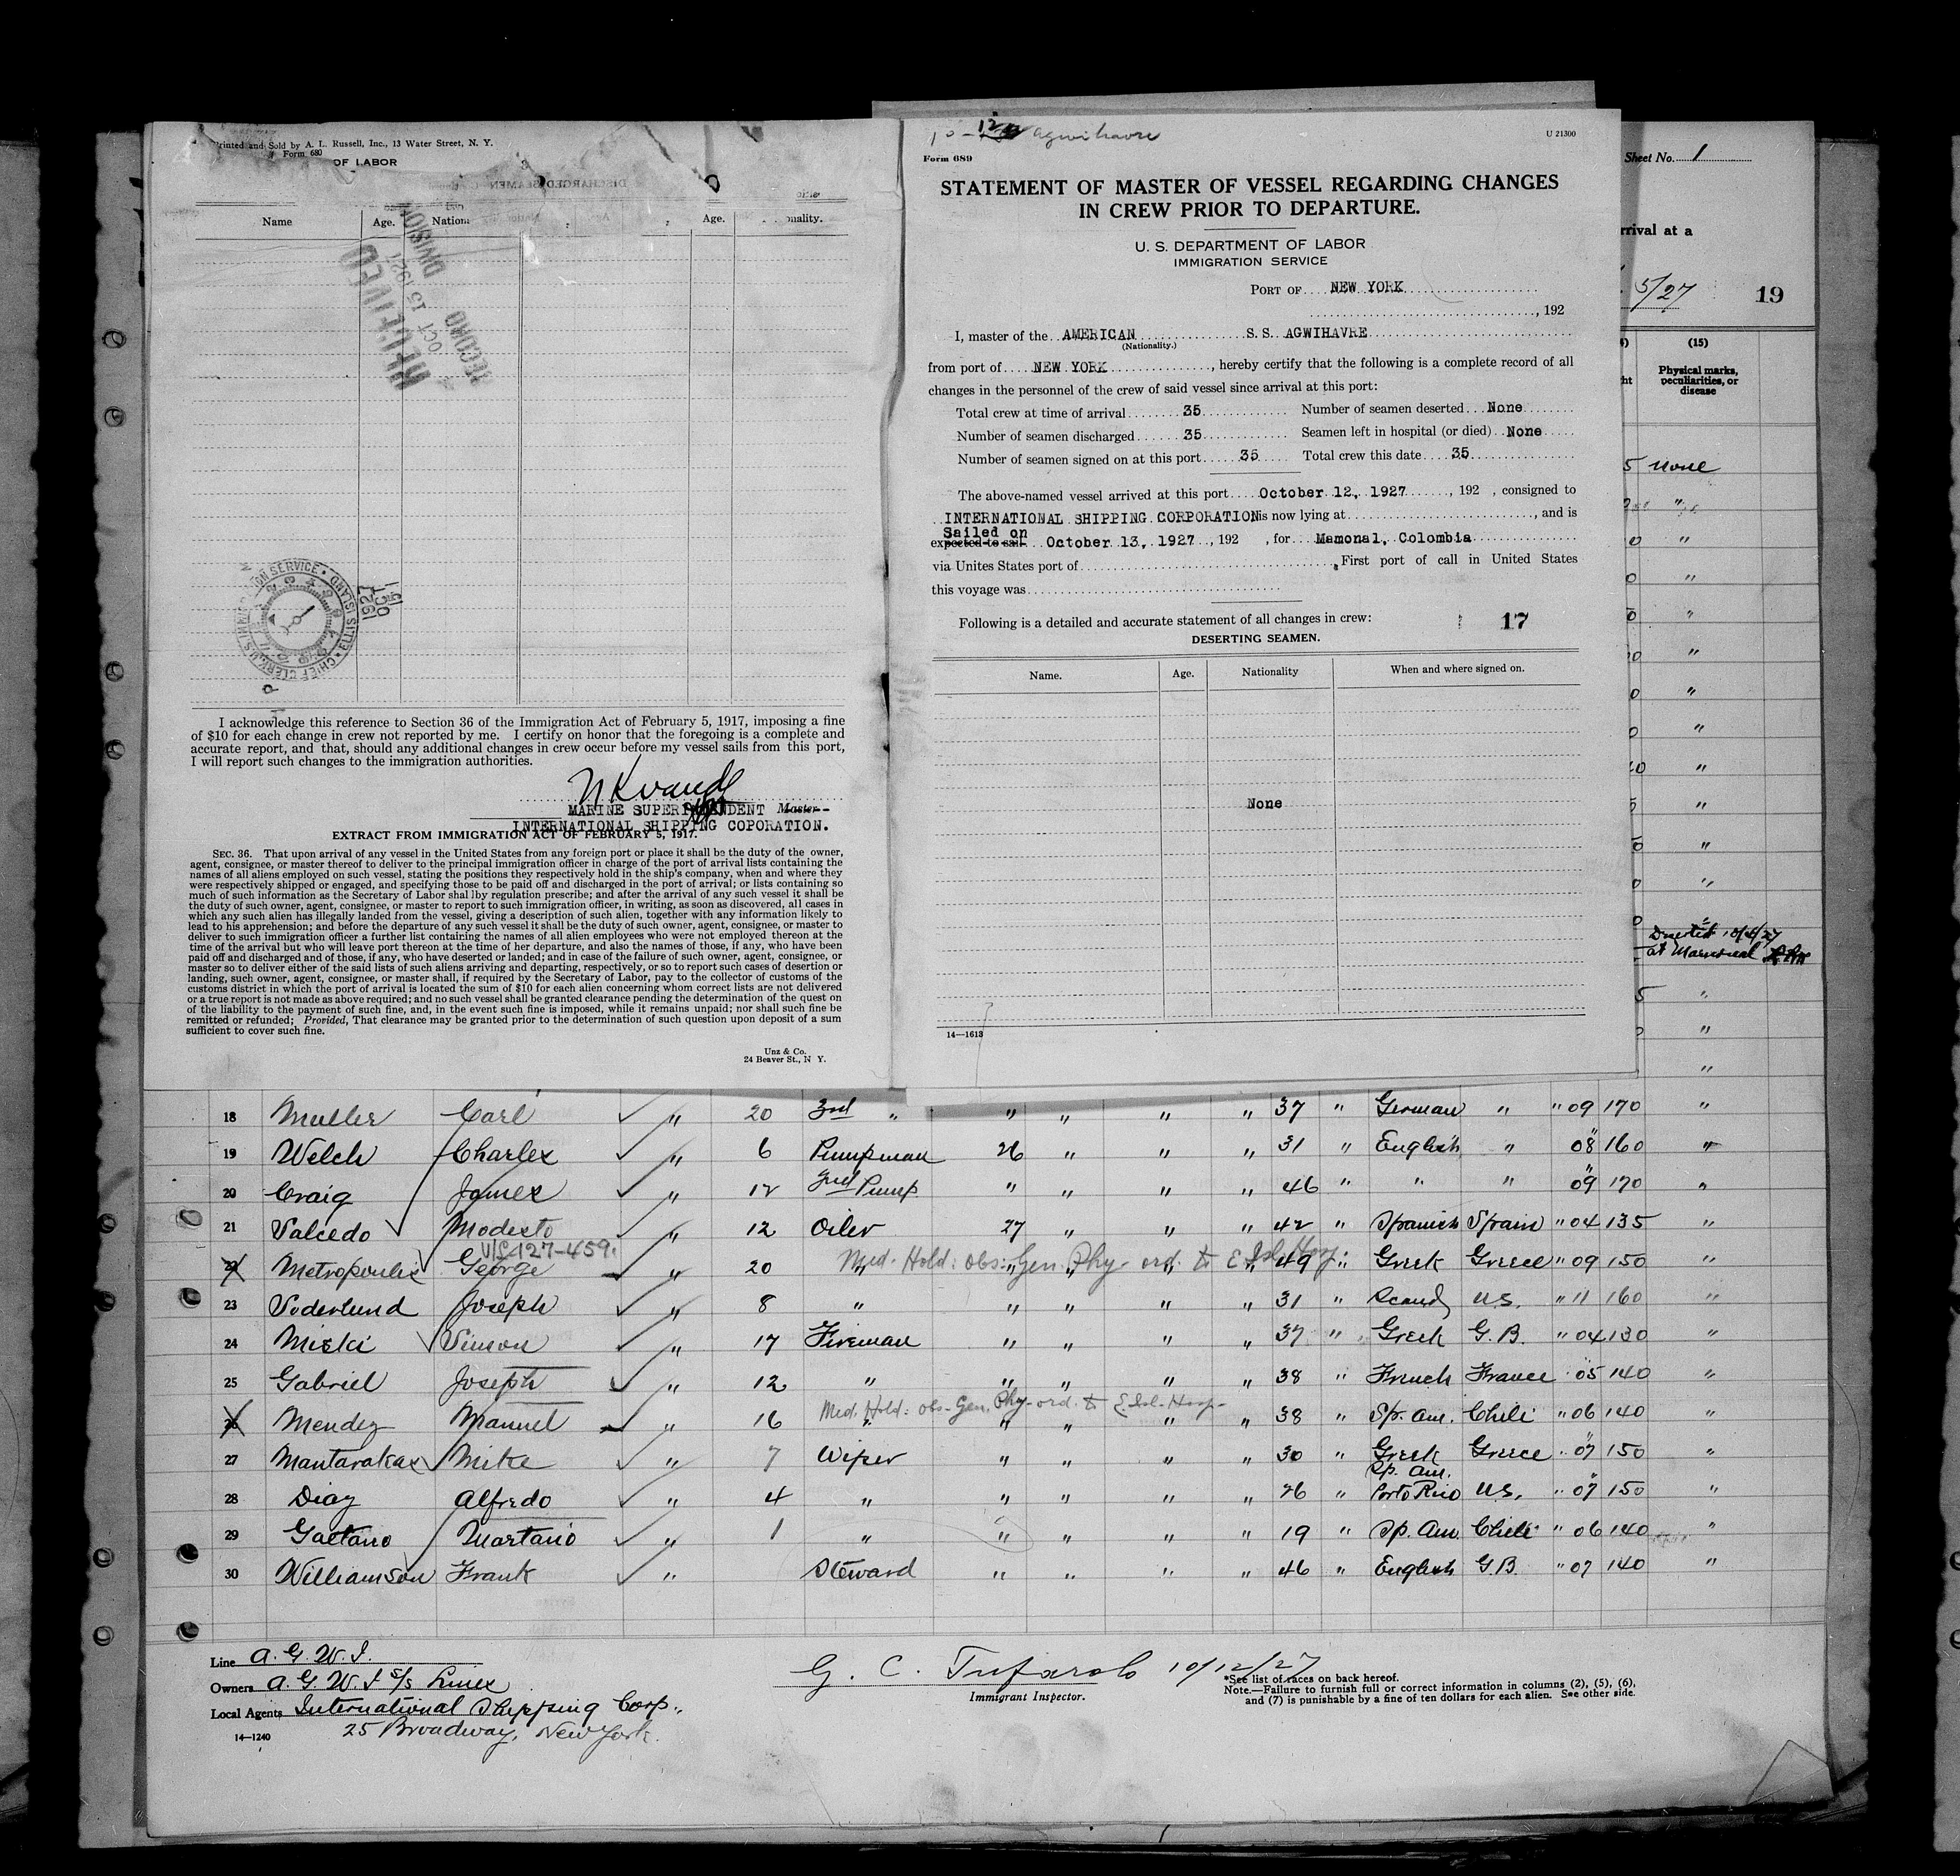 Printed and Sold by A. L. Russell, Inc., 13 Water Street, N. Y.
Form 680
OF LABOR
Name Age. Age.
RECEIVED
OCT 15 1927
RECORD DIVISION
CHIEF CLERK, U.S. IMMIGRATION SERVICE • ELLIS ISLAND •
OCT 15 1927
I acknowledge this reference to Section 36 of the Immigration Act of February 5, 1917, imposing a fine
of $10 for each change in crew not reported by me. I certify on honor that the foregoing is a complete and
accurate report, and that, should any additional changes in crew occur before my vessel sails from this port,
I will report such changes to the immigration authorities.
MARINE SUPERINTENDENT Master
INTERNATIONAL SHIPPING COPORATION.
EXTRACT FROM IMMIGRATION ACT OF FEBRUARY 5, 1917.
SEC. 36. That upon arrival of any vessel in the United States from any foreign port or place it shall be the duty of the owner,
agent, consignee, or master thereof to deliver to the principal immigration officer in charge of the port of arrival lists containing the
names of all aliens employed on such vessel, stating the positions they respectively hold in the ship's company, when and where they
were respectively shipped or engaged, and specifying those to be paid off and discharged in the port of arrival; or lists containing so
much of such information as the Secretary of Labor shal lby regulation prescribe; and after the arrival of any such vessel it shall be
the duty of such owner, agent, consignee, or master to report to such immigration officer, in writing, as soon as discovered, all cases in
which any such alien has illegally landed from the vessel, giving a description of such alien, together with any information likely to
lead to his apprehension; and before the departure of any such vessel it shall be the duty of such owner, agent, consignee, or master to
deliver to such immigration officer a further list containing the names of all alien employees who were not employed thereon at the
time of the arrival but who will leave port thereon at the time of her departure, and also the names of those, if any, who have been
paid off and discharged and of those, if any, who have deserted or landed; and in case of the failure of such owner, agent, consignee, or
master so to deliver either of the said lists of such aliens arriving and departing, respectively, or so to report such cases of desertion or
landing, such owner, agent, consignee, or master shall, if required by the Secretary of Labor, pay to the collector of customs of the
customs district in which the port of arrival is located the sum of $10 for each alien concerning whom correct lists are not delivered
or a true report is not made as above required; and no such vessel shall be granted clearance pending the determination of the quest on
of the liability to the payment of such fine, and, in the event such fine is imposed, while it remains unpaid; nor shall such fine be
remitted or refunded; Provided, That clearance may be granted prior to the determination of such question upon deposit of a sum
sufficient to cover such fine.
Unz & Co.
24 Beaver St., N Y.
12 Agwihavre
U 21300
Form 689
STATEMENT OF MASTER OF VESSEL REGARDING CHANGES
IN CREW PRIOR TO DEPARTURE.
U. S. DEPARTMENT OF LABOR
IMMIGRATION SERVICE
PORT OF NEW YORK
, 192
I, master of the AMERICAN S.S. AGWIHAVRE
(Nationality.)
from port of NEW YORK, hereby certify that the following is a complete record of all
changes in the personnel of the crew of said vessel since arrival at this port:
Total crew at time of arrival 35 Number of seamen deserted None
Number of seamen discharged 35 Seamen left in hospital (or died) None
Number of seamen signed on at this port 35 Total crew this date 35
The above-named vessel arrived at this port October 12, 1927, 192 , consigned to
INTERNATIONAL SHIPPING CORPORATION is now lying at , and is
Sailed on
expected to sail October 13, 1927, 192 , for Mamonal, Colombia
via Unites States port of . First port of call in United States
this voyage was
Following is a detailed and accurate statement of all changes in crew: 17
DESERTING SEAMEN.
Name. Age. Nationality When and where signed on.
None
14—1613
Sheet No. 1
rrival at a
5/27 19
(15)
Physical marks, peculiarities, or disease
none
Deserted
at Mamonal
18 Muller Carl " 20 3rd " " " " " 37 " German " " 09 170 "
19 Welch Charles " 6 Pumpman 26 " " " 31 " English " " 08 160 "
20 Craig James " 12 2nd Pump " " " " 46 " " " " 09 170 "
21 Salcedo Modesto " 12 Oiler 27 " " " 42 " Spanish Spain " 04 135 "
V/S 127-459.
Med. Hold: obs: Gen. Phy. ord. to E. Isl. Hosp.
22 Metropoulis George " 20 " " " " " 49 " Greek Greece " 09 150 "
23 Soderlund Joseph " 8 " " " " " 31 " Scand. U.S. " 11 160 "
24 Miski Simon " 17 Fireman " " " " 37 " Greek G.B. " 04 130 "
25 Gabriel Joseph " 12 " " " " " 38 " French France " 05 140 "
Med. Hold: obs- Gen. Phy- ord. to E. Isl- Hosp-
26 Mendez Manuel " 16 " " " " " 38 " Sp. Am. Chili " 06 140 "
27 Mantarakas Mike " 7 Wiper " " " " 30 " Greek Greece " 07 150 "
Sp. Am.
28 Diaz Alfredo " 4 " " " " " 26 " Porto Rico U.S. " 07 150 "
29 Gaetano Martano " 1 " " " " " 19 " Sp. Am. Chili " 06 140 "
30 Williamson Frank " Steward " " " " 46 " English G.B. " 07 140 "
Line A. G. W. I.
Owners A. G. W. I S/S Lines
Local Agents International Shipping Corp.,
25 Broadway, New York.
14—1240
G. C. Tufarolo 10/12/27
Immigrant Inspector.
*See list of races on back hereof.
Note.—Failure to furnish full or correct information in columns (2), (5), (6),
and (7) is punishable by a fine of ten dollars for each alien. See other side.